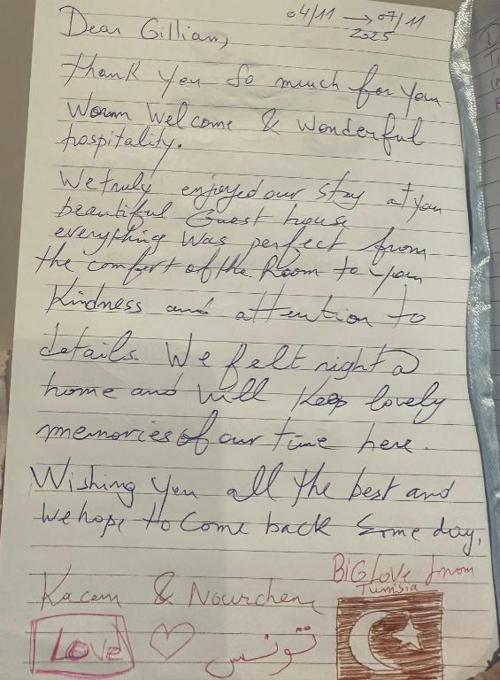 04/11 → 07/11
2025
Dear Gillian,
thank you so much for your
Worm Welcome & Wonderful
hospitality.
We truly enjoyed our stay at your
beautiful Guest house
everything was perfect from
the comfort of the Room to your
Kindness and attention to
details. We felt right a
home and will keep lovely
memories of our time here.
Wishing you all the best and
we hope to come back some day,
BiG Love from
Tunisia
Kacem & Nourchene
LOVE
تونس